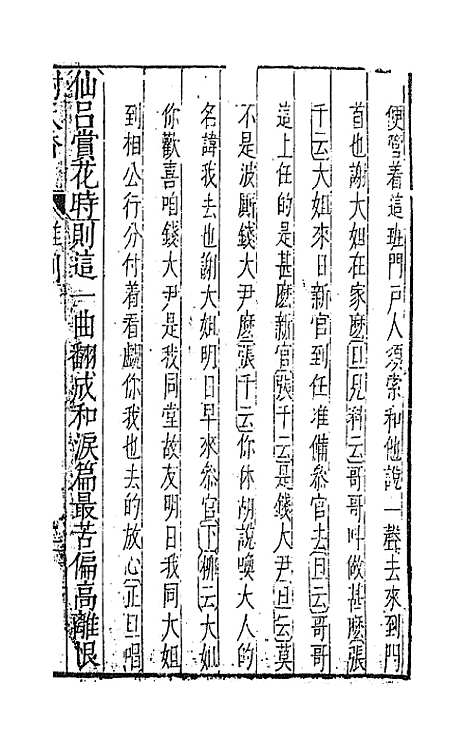 便管着這班門戶人須索和他說一聲去來到門
首也謝大姐在家麽旦兒科云哥哥叫做甚麽張
千云大姐來日新官到任准備叅官去旦云哥哥
這上任的是甚麽新官張千云是錢大尹旦云莫
不是波厮錢大尹麽張千云你休胡說喚大人的
名諱我去也謝大姐明日早來叅官下柳云大姐
你歡喜咱錢大尹是我同堂故友明日我同大姐
到相公行分付着看覷你我也去的放心正旦唱
仙呂賞花時則這一曲翻成和淚篇最苦偏高離恨